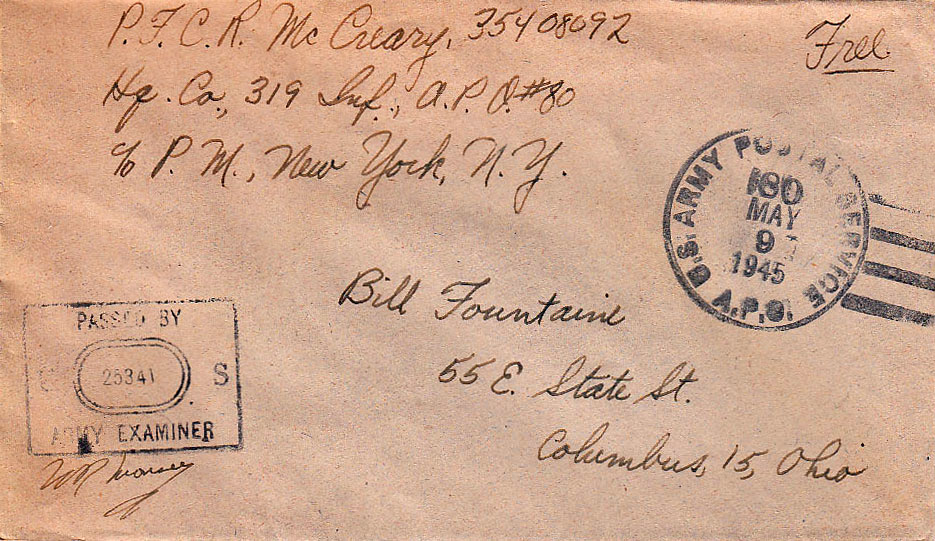 P.F.C. R. McCreary, 35408092
Free
Hq. Co., 319 Inf., A.P.O. #80
c/o P.M., New York, N.Y.
U.S. ARMY POSTAL SERVICE
180
MAY
9
1945
A.P.O.
Bill Fountaine
55 E. State St.
Columbus, 15, Ohio
PASSED BY
25341
S
ARMY EXAMINER